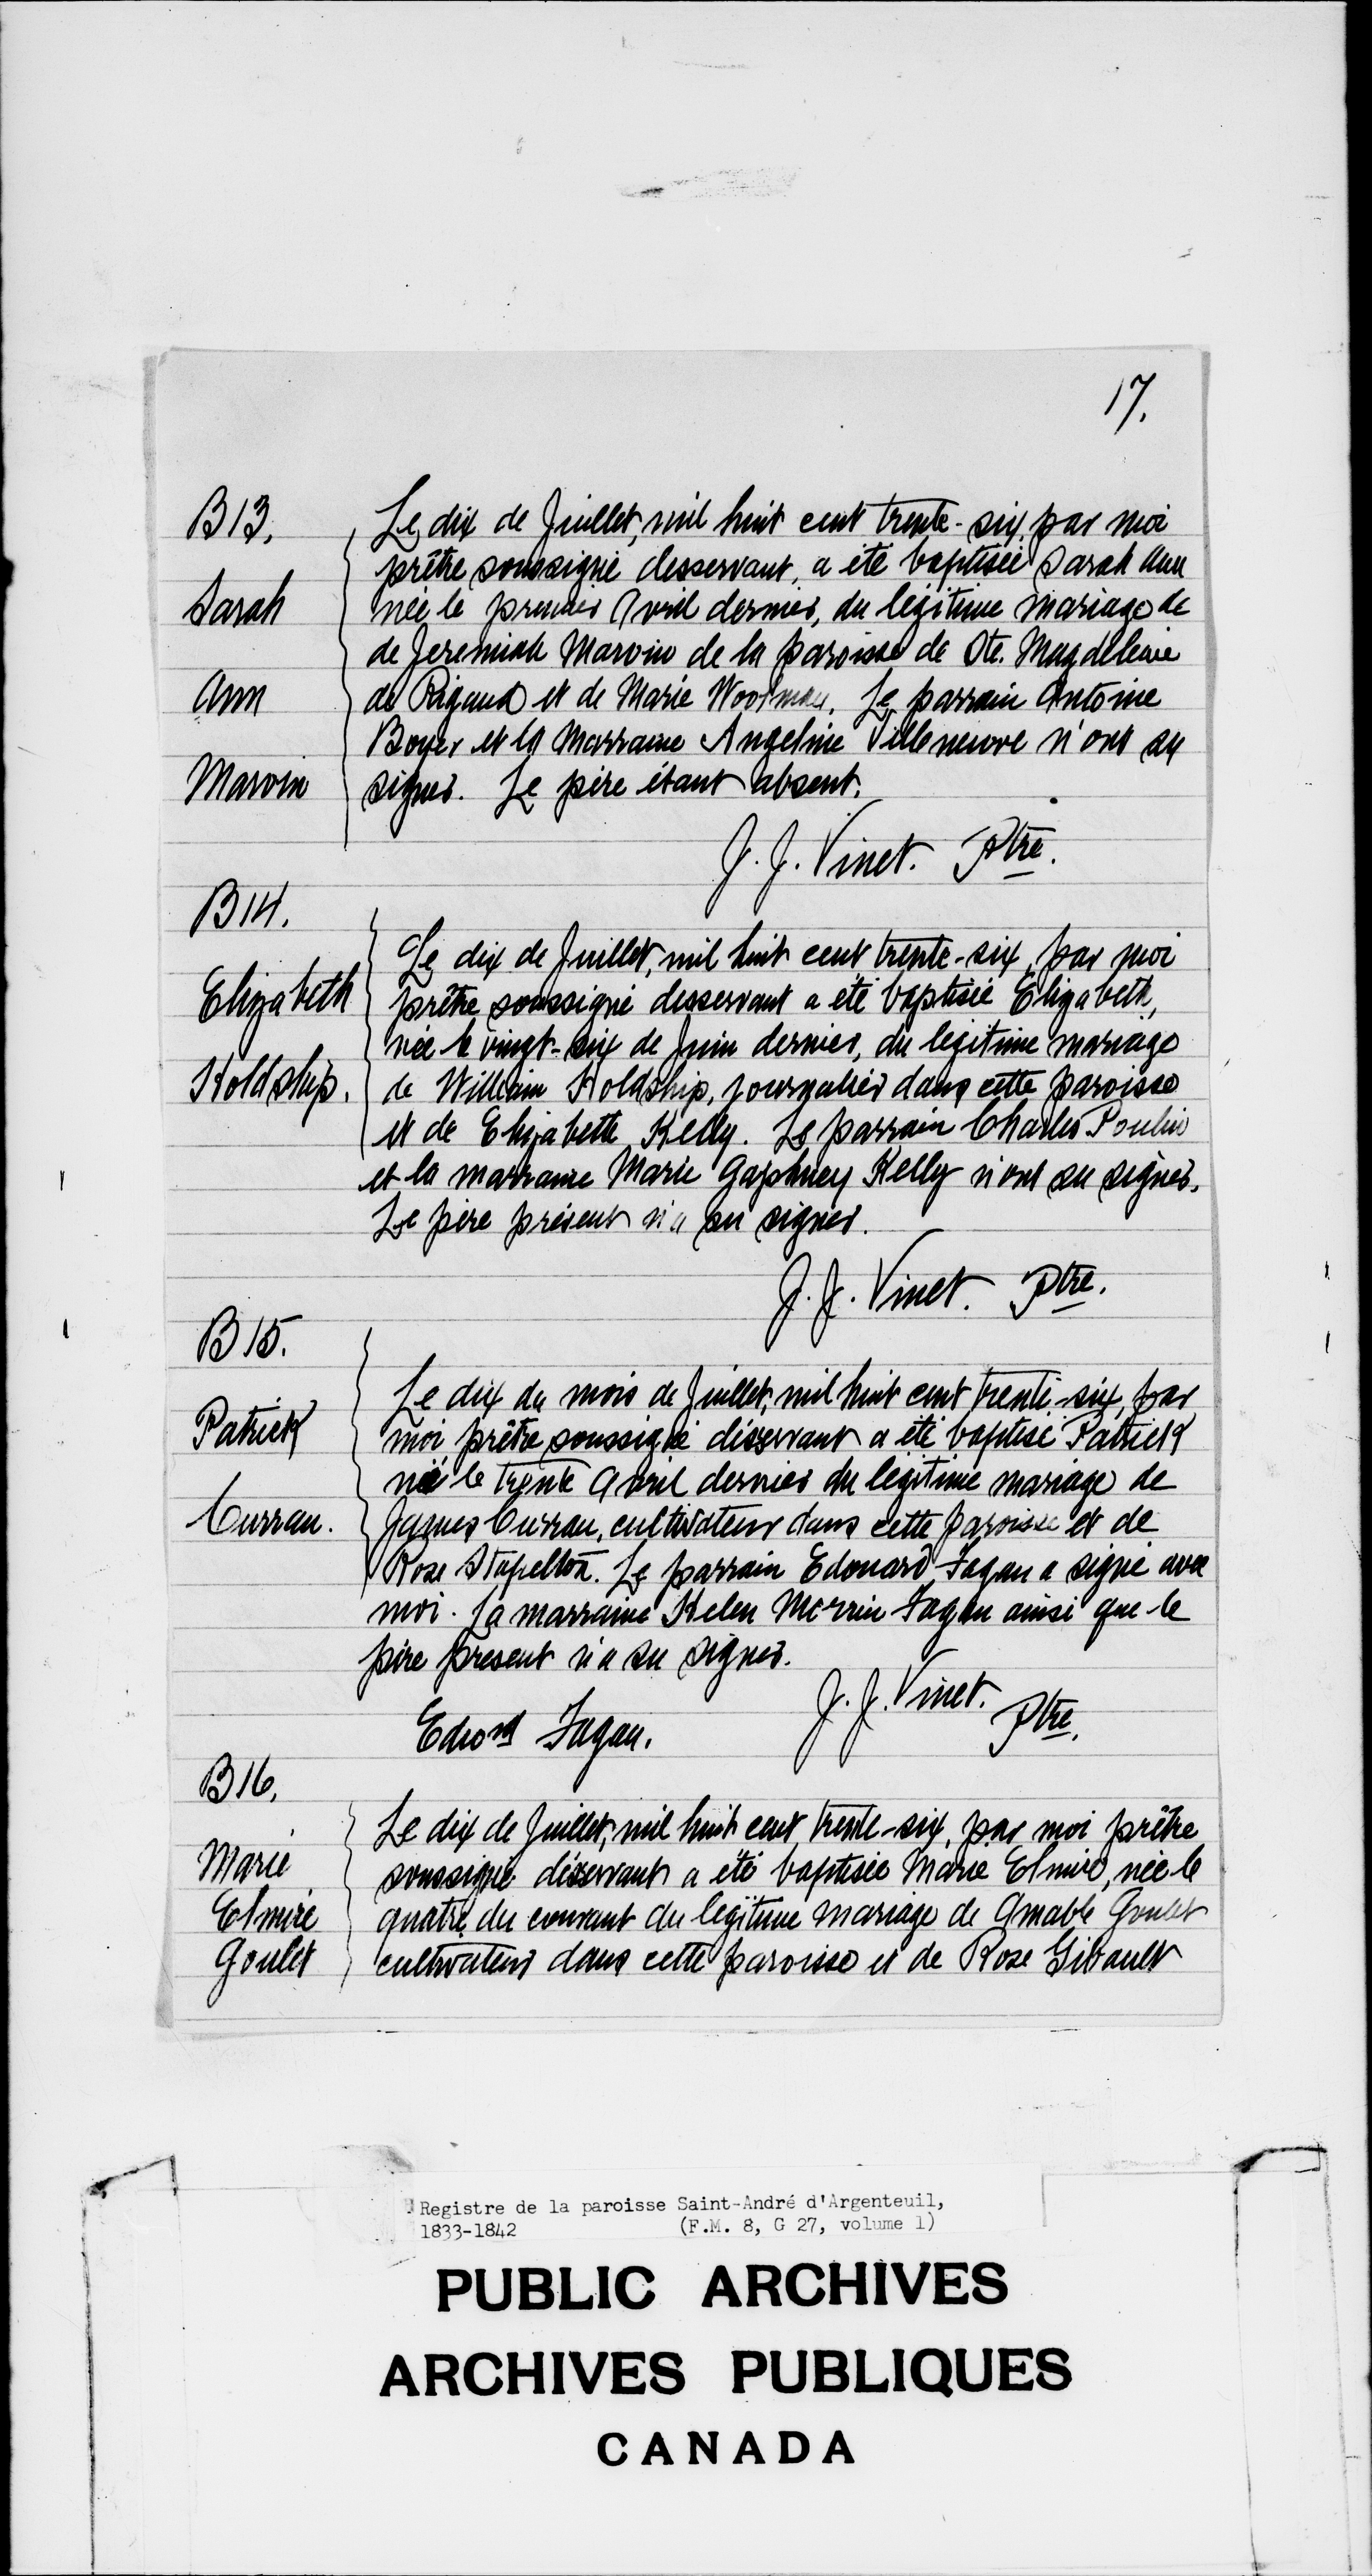 17.
B13.
Sarah
Ann
Marvin
Le dix de Juillet, mil huit cent trente-six, par moi
prêtre soussigné desservant, a été baptisée Sarah Ann
née le premier Avril dernier, du légitime mariage de
de Jeremiah Marvin de la paroisse de Ste. Magdeleine
de Rigaud et de Marie Woodman. Le parrain Antoine
Boyer et la Marraine Angeline Villeneuve n'ont su
signer. Le père étant absent.
J. J. Vinet. Ptre.
B14.
Elizabeth
Holdship.
Le dix de Juillet, mil huit cent trente-six, par moi
prêtre soussigné desservant a été baptisée Elizabeth,
née le vingt-six de Juin dernier, du légitime mariage
de William Holdship, journalier dans cette paroisse
et de Elizabeth Kelly. Le parrain Charles Poulin
et la marraine Marie Gaphney Kelly n'ont su signer.
Le père présent n'a su signer.
J. J. Vinet. Ptre.
B15.
Patrick
Curran.
Le dix du mois de Juillet, mil huit cent trente-six, par
moi prêtre soussigné désservant a été baptisé Patrick
né le trente Avril dernier du légitime mariage de
James Curran, cultivateur dans cette paroisse et de
Rose Stapelton. Le parrain Edouard Fagan a signé avec
moi. La marraine Helen Merrin Fagan ainsi que le
père present n'a su signer.
J. J. Vinet. Ptre.
Edwd Fagan.
B16.
Marie
Elmire
Goulet
Le dix de Juillet, mil huit cent trente-six, par moi prêtre
soussigné désservant a été baptisée Marie Elmire, née le
quatre du courant du légitime mariage de Amable Goulet
cultivateur dans cette paroisse et de Rose Gibault
Registre de la paroisse Saint-André d'Argenteuil,
1833-1842 (F.M. 8, G 27, volume 1)
PUBLIC ARCHIVES
ARCHIVES PUBLIQUES
CANADA